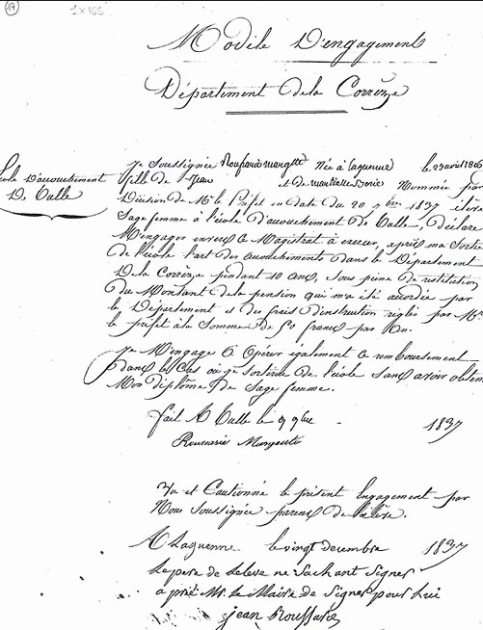 17
Modèle D'engagement
Département de la Corrèze
École D'accouchement
De Tulle
Je soussignée Marguerite Née à Laguenne le 23 avril 1806
fille de Jean et de Marie Nommée par
Décision de Mr le Préfet en date du 20 9bre 1837 élève
Sage femme à l'école d'accouchement de Tulle, déclare
M'engager envers ce Magistrat à exercer, après ma Sortie
de l'école l'art des accouchements dans le Département
De la Corrèze pendant 10 ans, sous peine de restitution
du Montant de la pension qui m'a été accordée par
le Département et des frais d'instruction réglés par Mr
le préfet à la Somme de francs par An.
Je M'engage à Opérer également ce remboursement
Dans le Cas où je Sortirai de l'école sans avoir obtenu
Mon Diplôme de Sage femme.
fait A Tulle le 9 9bre 1837
Vu et Cautionné le présent Engagement par
Nous Soussignés parens de l'élève.
A Laguenne le vingt decembre 1837
Le pere de leleve ne Sachant Signer
a prié Mr le Maire de Signer pour Lui
jean